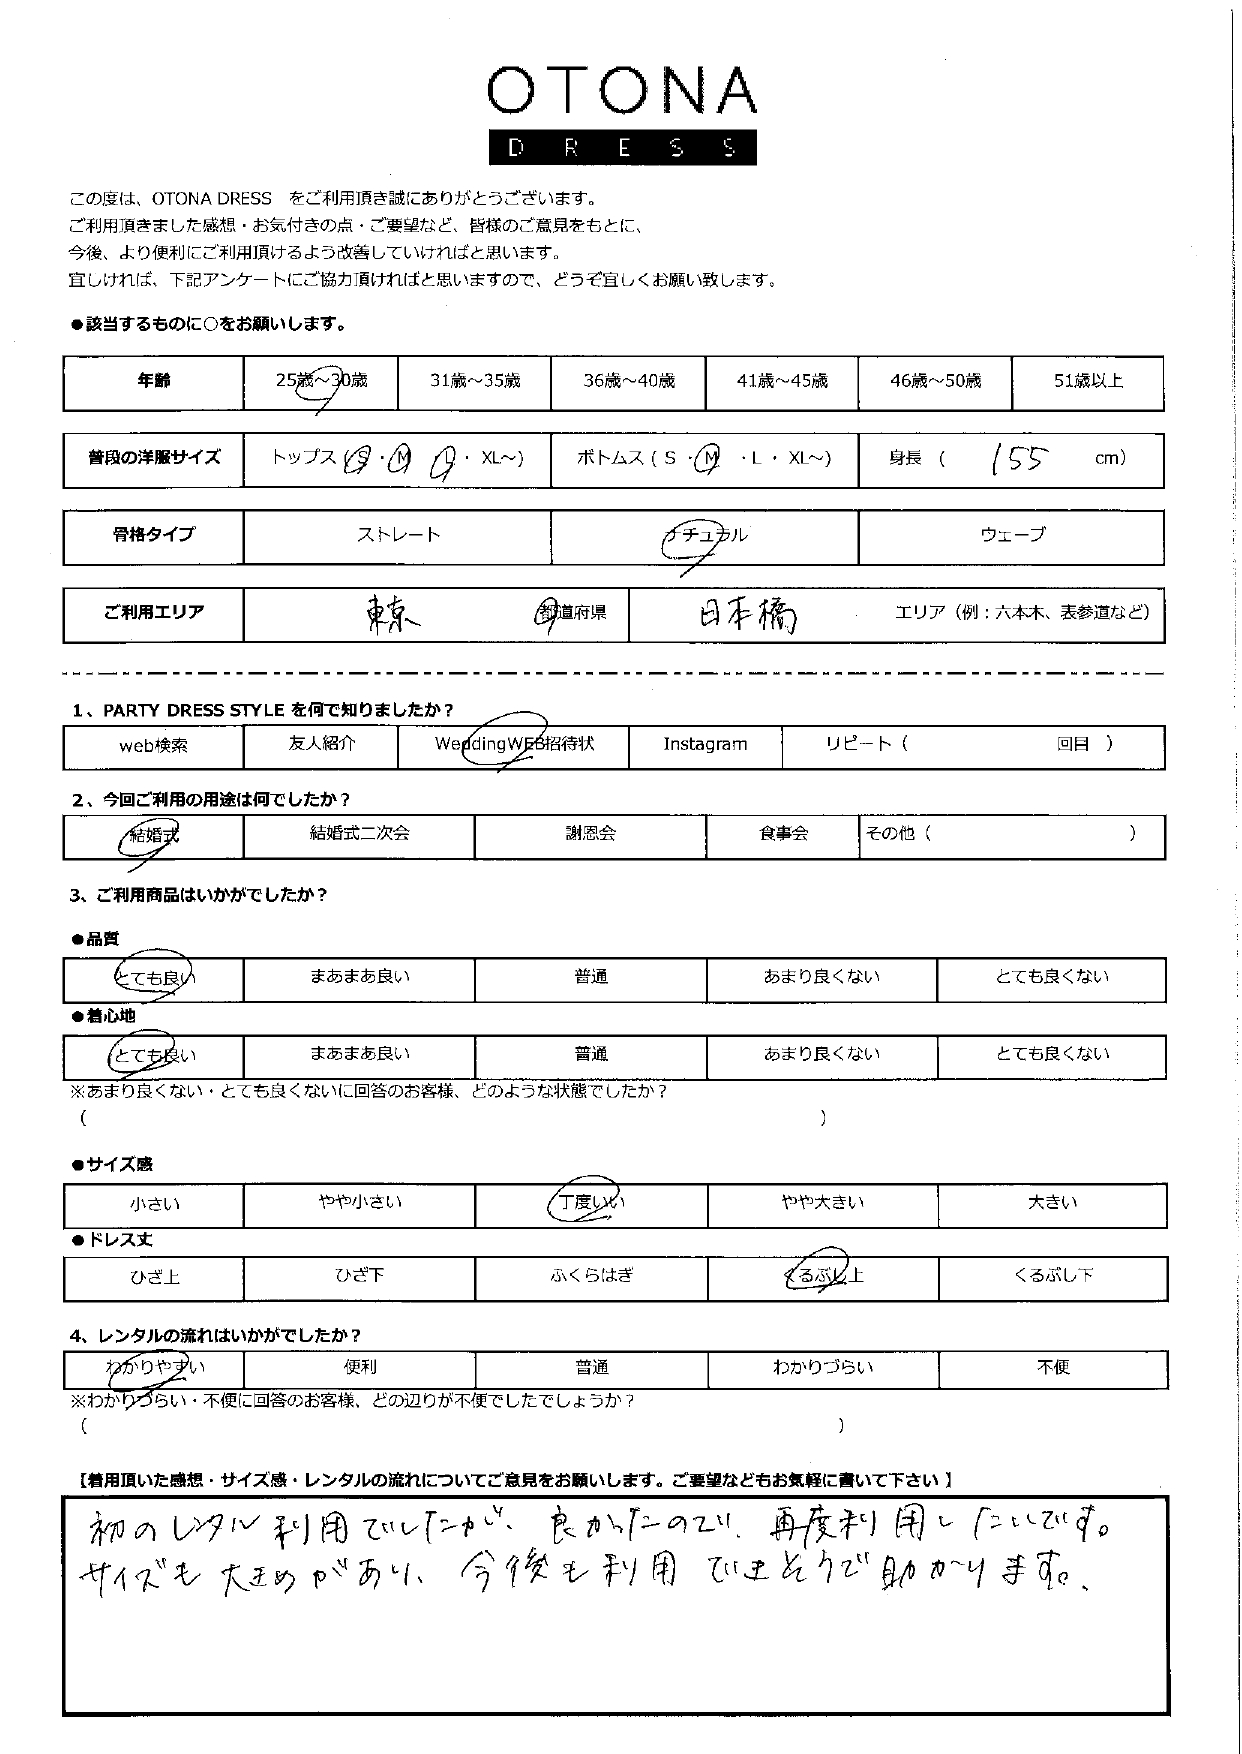 OTONA
DRESS
この度は、OTONA DRESS をご利用頂き誠にありがとうございます。
ご利用頂きました感想・お気付きの点・ご要望など、皆様のご意見をもとに、
今後、より便利にご利用頂けるよう改善していければと思います。
宜しければ、下記アンケートにご協力頂ければと思いますので、どうぞ宜しくお願い致します。
●該当するものに○をお願いします。
年齢 25歳～30歳 31歳～35歳 36歳～40歳 41歳～45歳 46歳～50歳 51歳以上
普段の洋服サイズ トップス ( S ・ M ・ L ・ XL～) ボトムス ( S ・ M ・ L ・ XL～) 身長 ( 155 cm)
骨格タイプ ストレート ナチュラル ウェーブ
ご利用エリア 東京 都道府県 日本橋 エリア（例：六本木、表参道など）
1、PARTY DRESS STYLE を何で知りましたか？
web検索 友人紹介 WeddingWEB招待状 Instagram リピート（ 回目 ）
2、今回ご利用の用途は何でしたか？
結婚式 結婚式二次会 謝恩会 食事会 その他（ ）
3、ご利用商品はいかがでしたか？
●品質
とても良い まあまあ良い 普通 あまり良くない とても良くない
●着心地
とても良い まあまあ良い 普通 あまり良くない とても良くない
※あまり良くない・とても良くないに回答のお客様、どのような状態でしたか？
( )
●サイズ感
小さい やや小さい 丁度いい やや大きい 大きい
●ドレス丈
ひざ上 ひざ下 ふくらはぎ くるぶし上 くるぶし下
4、レンタルの流れはいかがでしたか？
わかりやすい 便利 普通 わかりづらい 不便
※わかりづらい・不便に回答のお客様、どの辺りが不便でしたでしょうか？
( )
【着用頂いた感想・サイズ感・レンタルの流れについてご意見をお願いします。ご要望などもお気軽に書いて下さい】
初のレンタル利用でしたが、良かったので、再度利用したいです。
サイズも大きめがあり、今後も利用できそうで助かります。